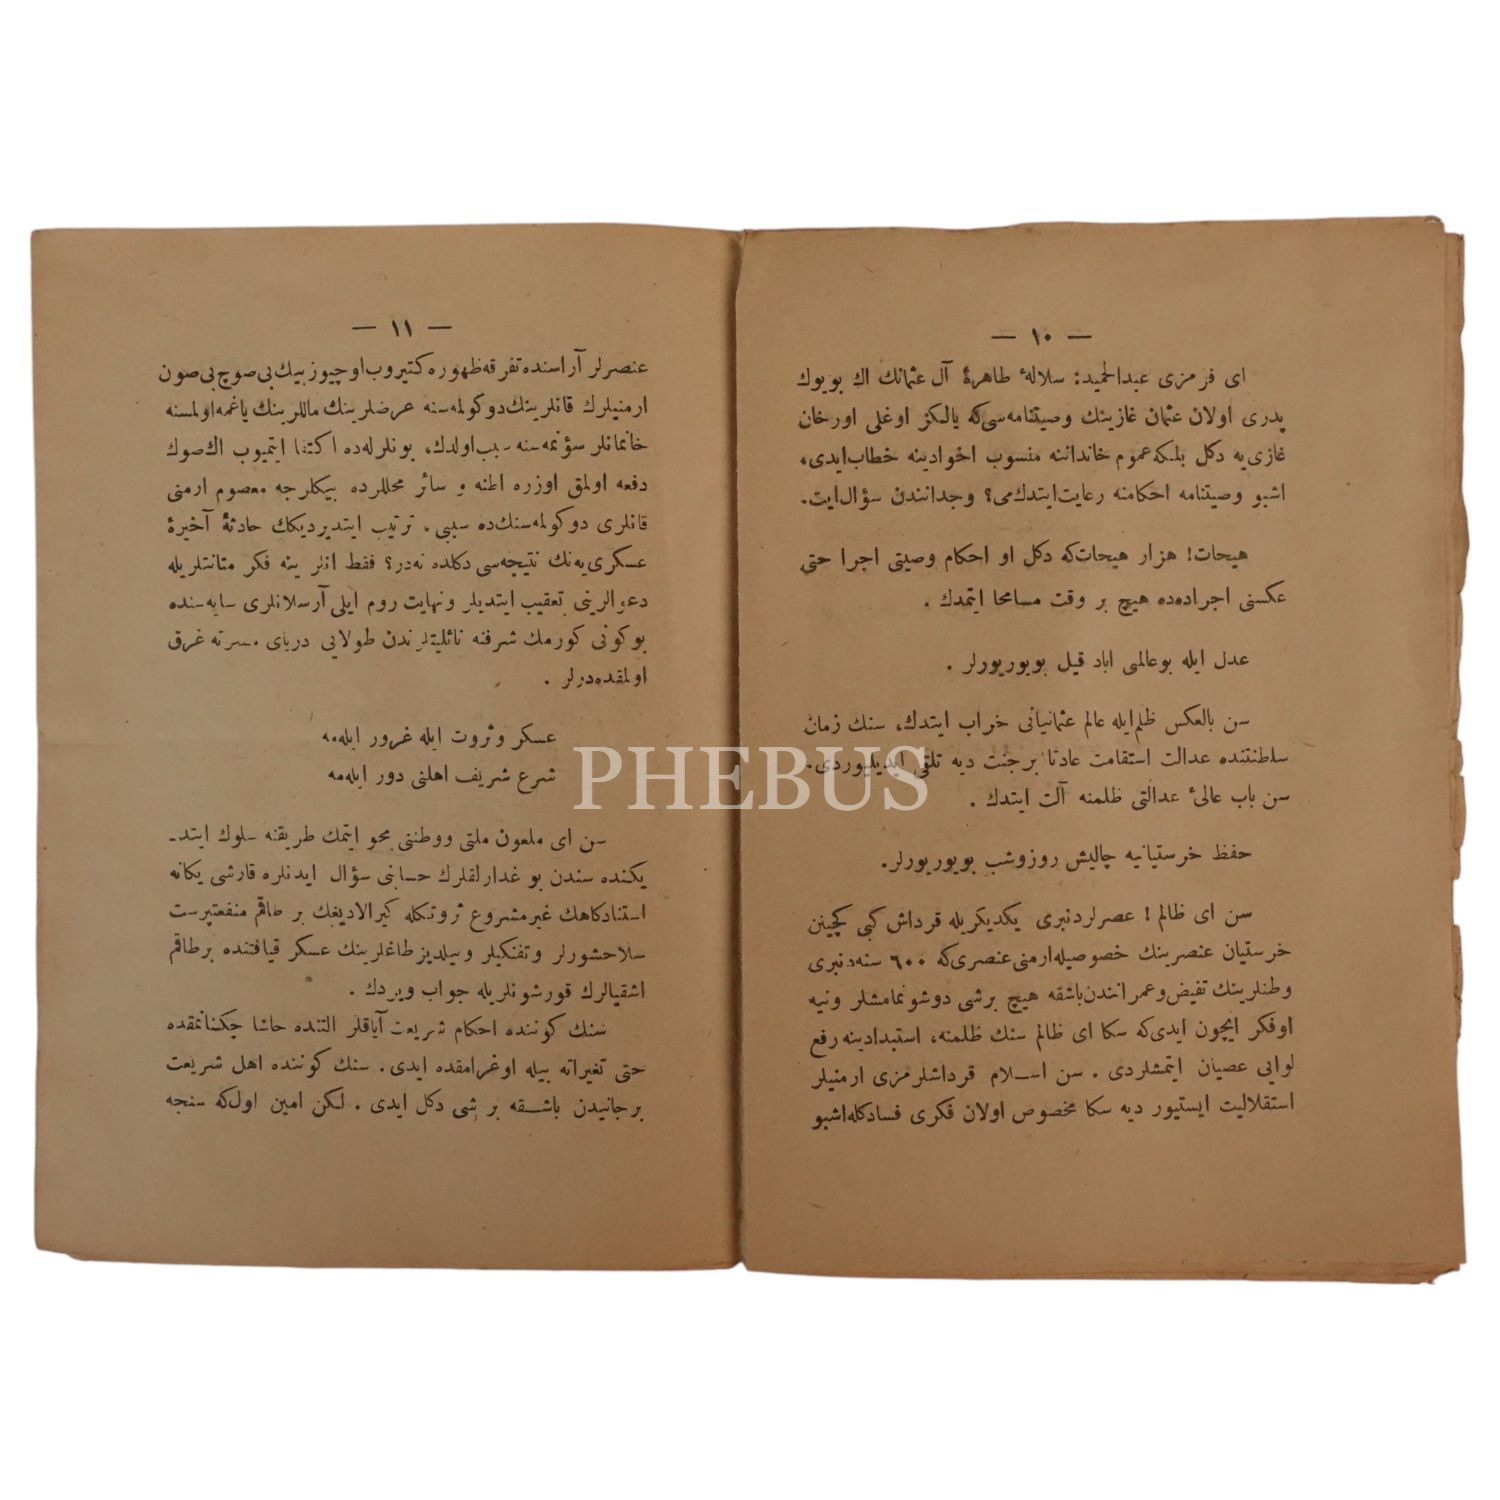 — ١٠ —
ای قرمزی عبدالحمید: سلالهٔ طاهرهٔ آل عثمانك اك بویوك
پدری اولان عثمان غازینك وصیتنامه‌سی‌كه یالكز اوغلی اورخان
غازی‌یه دكل بلكه عموم خانداننه منسوب اخوادینه خطاب ایدی،
اشبو وصیتنامه احكامنه رعایت ایتدك‌می؟ وجدانندن سؤال ایت.
هیحات! هزار هیحات‌كه دكل او احكام وصیتی اجرا حتی
عكسنی اجراده‌ده هیچ بر وقت مسامحا ایتمدك .
عدل ایله بوعالمی اباد قیل بویوریورلر .
سن بالعكس ظلم‌ایله عالم عثمانیانی خراب ایتدك، سنك زمان
سلطنتنده عدالت استقامت عادتا بر جنت دیه تلقی ایدیلیوردی.
سن باب عالیٔ عدالتی ظلمنه آلت ایتدك .
حفظ خرستیانیه چالیش روزوشب بویوریورلر.
سن ای ظالم ! عصرلردنبری یكدیكریله قرداش كبی كچینن
خرستیان عنصرینك خصوصیله ارمنی عنصری‌كه ٦٠٠ سنه‌دنبری
وطنلرینك تفیض وعمرانندن باشقه هیچ برشی دوشونمامشلر ونیه
اوفكر ایچون ایدی‌كه سكا ای ظالم سنك ظلمنه، استبدادینه رفع
لوایی عصیان ایتمشلردی . سن اسلام قرداشلرمزی ارمنیلر
استقلالیت ایستیور دیه سكا مخصوص اولان فكری فسادكله اشبو
— ١١ —
عنصرلر آراسنده تفرقه ظهوره كتیروب اوچیوز بیك بی صوچ بی صون
ارمنیلرك قانلرینك دوكولمه‌سنه عرضلرینك ماللرینك یاغمه اولمسنه
خانمانلر سؤنمه‌سنه سبب اولدك، بونلرله‌ده اكتفا ایتمیوب اك صوك
دفعه اولمق اوزره اطنه و سائر محللرده بیكلرجه معصوم ارمنی
قانلری دوكولمه‌سنك‌ده سببی . ترتیب ایتدیردیكك حادثهٔ آخیرهٔ
عسكری‌یه‌نك نتیجه‌سی دكلده نه‌در؟ فقط انلر ینه فكر متانتلریله
دعوالرینی تعقیب ایتدیلر ونهایت روم ایلی آرسلانلری سایه‌سنده
بوكونی كورمك شرفنه نائلیتلرندن طولایی دریای مسرته غرق
اولمقده‌درلر .
عسكر وثروت ایله غرور ایله‌مه
شرع شریف اهلنی دور ایله‌مه
سن ای ملعون ملتی ووطننی محو ایتمك طریقنه سلوك ایتد‌ـ
یكنده سندن بو غدارلقلرك حسابنی سؤال ایدنلره قارشی یكانه
استنادكاهك غیرمشروع ثروتكله كیرالادیغك بر طاقم منفعتپرست
سلاحشورلر وتفنكیلر ویلدیز طاغلرینك عسكر قیافتنده برطاقم
اشقیالرك قورشونلریله جواب ویردك .
سنك كوننده احكام شریعت آیاقلر التنده حاشا چكنانمقده
حتی تغیراته بیله اوغرامقده ایدی. سنك كوننده اهل شریعت
برجانیدن باشقه بر شی دكل ایدی . لكن امین اول‌كه سنجه
PHEBUS